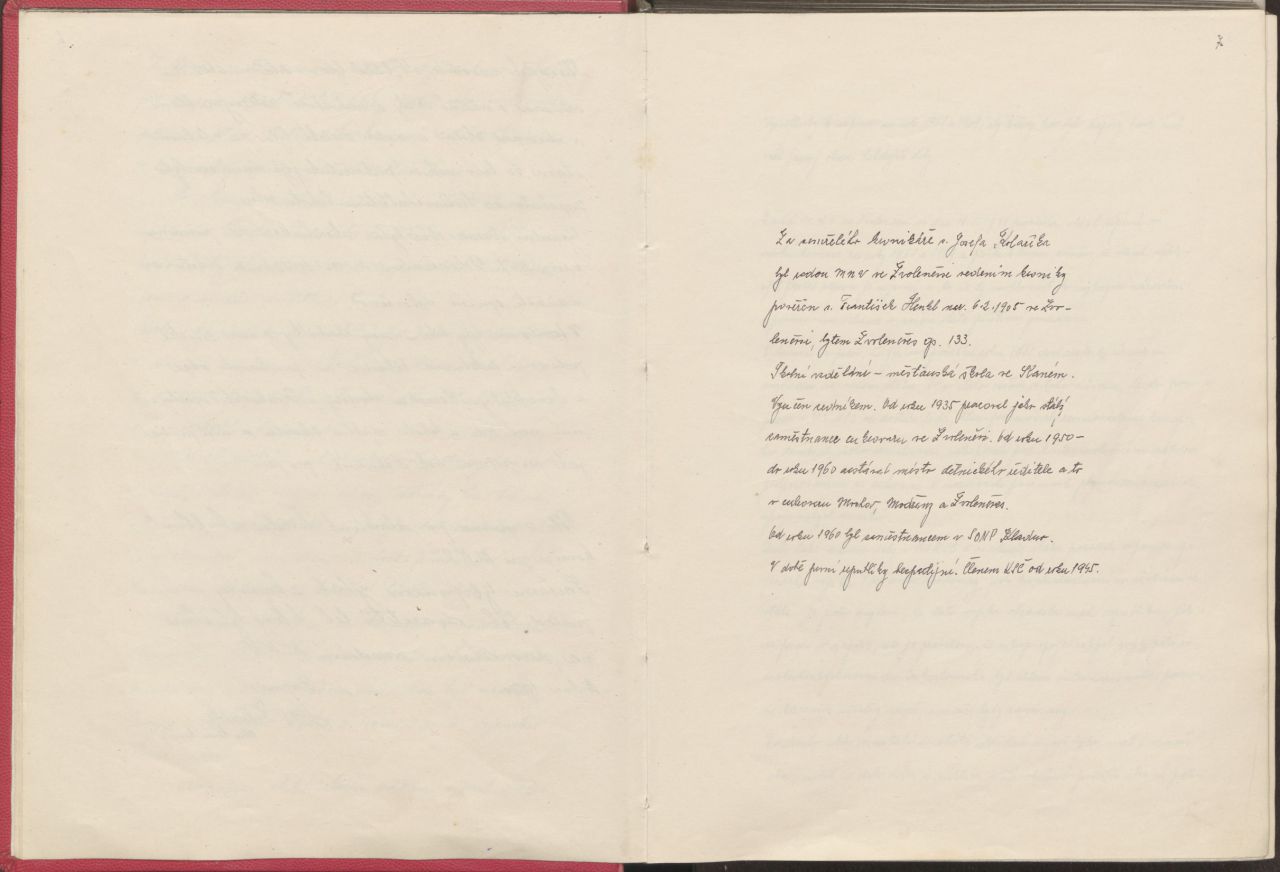 7
Za zemřelého kronikáře s. Josefa Kolaříka
byl radou MNV ve Zvoleněvsi vedením kroniky
pověřen s. František Henkl nar. 6.2.1905 ve Zvo-
leněvsi, bytem Zvoleněves čp. 133.
Školní vzdělání – měšťanská škola ve Slaném.
Vyučen zedníkem. Od roku 1935 pracoval jako stálý
zaměstnanec cukrovaru ve Zvoleněvsi. Od roku 1950 –
do roku 1960 zastával místo dělnického ředitele a to
v cukrovaru Modřany a Zvoleněves.
Od roku 1960 byl zaměstnancem v SONP Kladno.
V době první republiky bezpartijní. Členem KSČ od roku 1945.